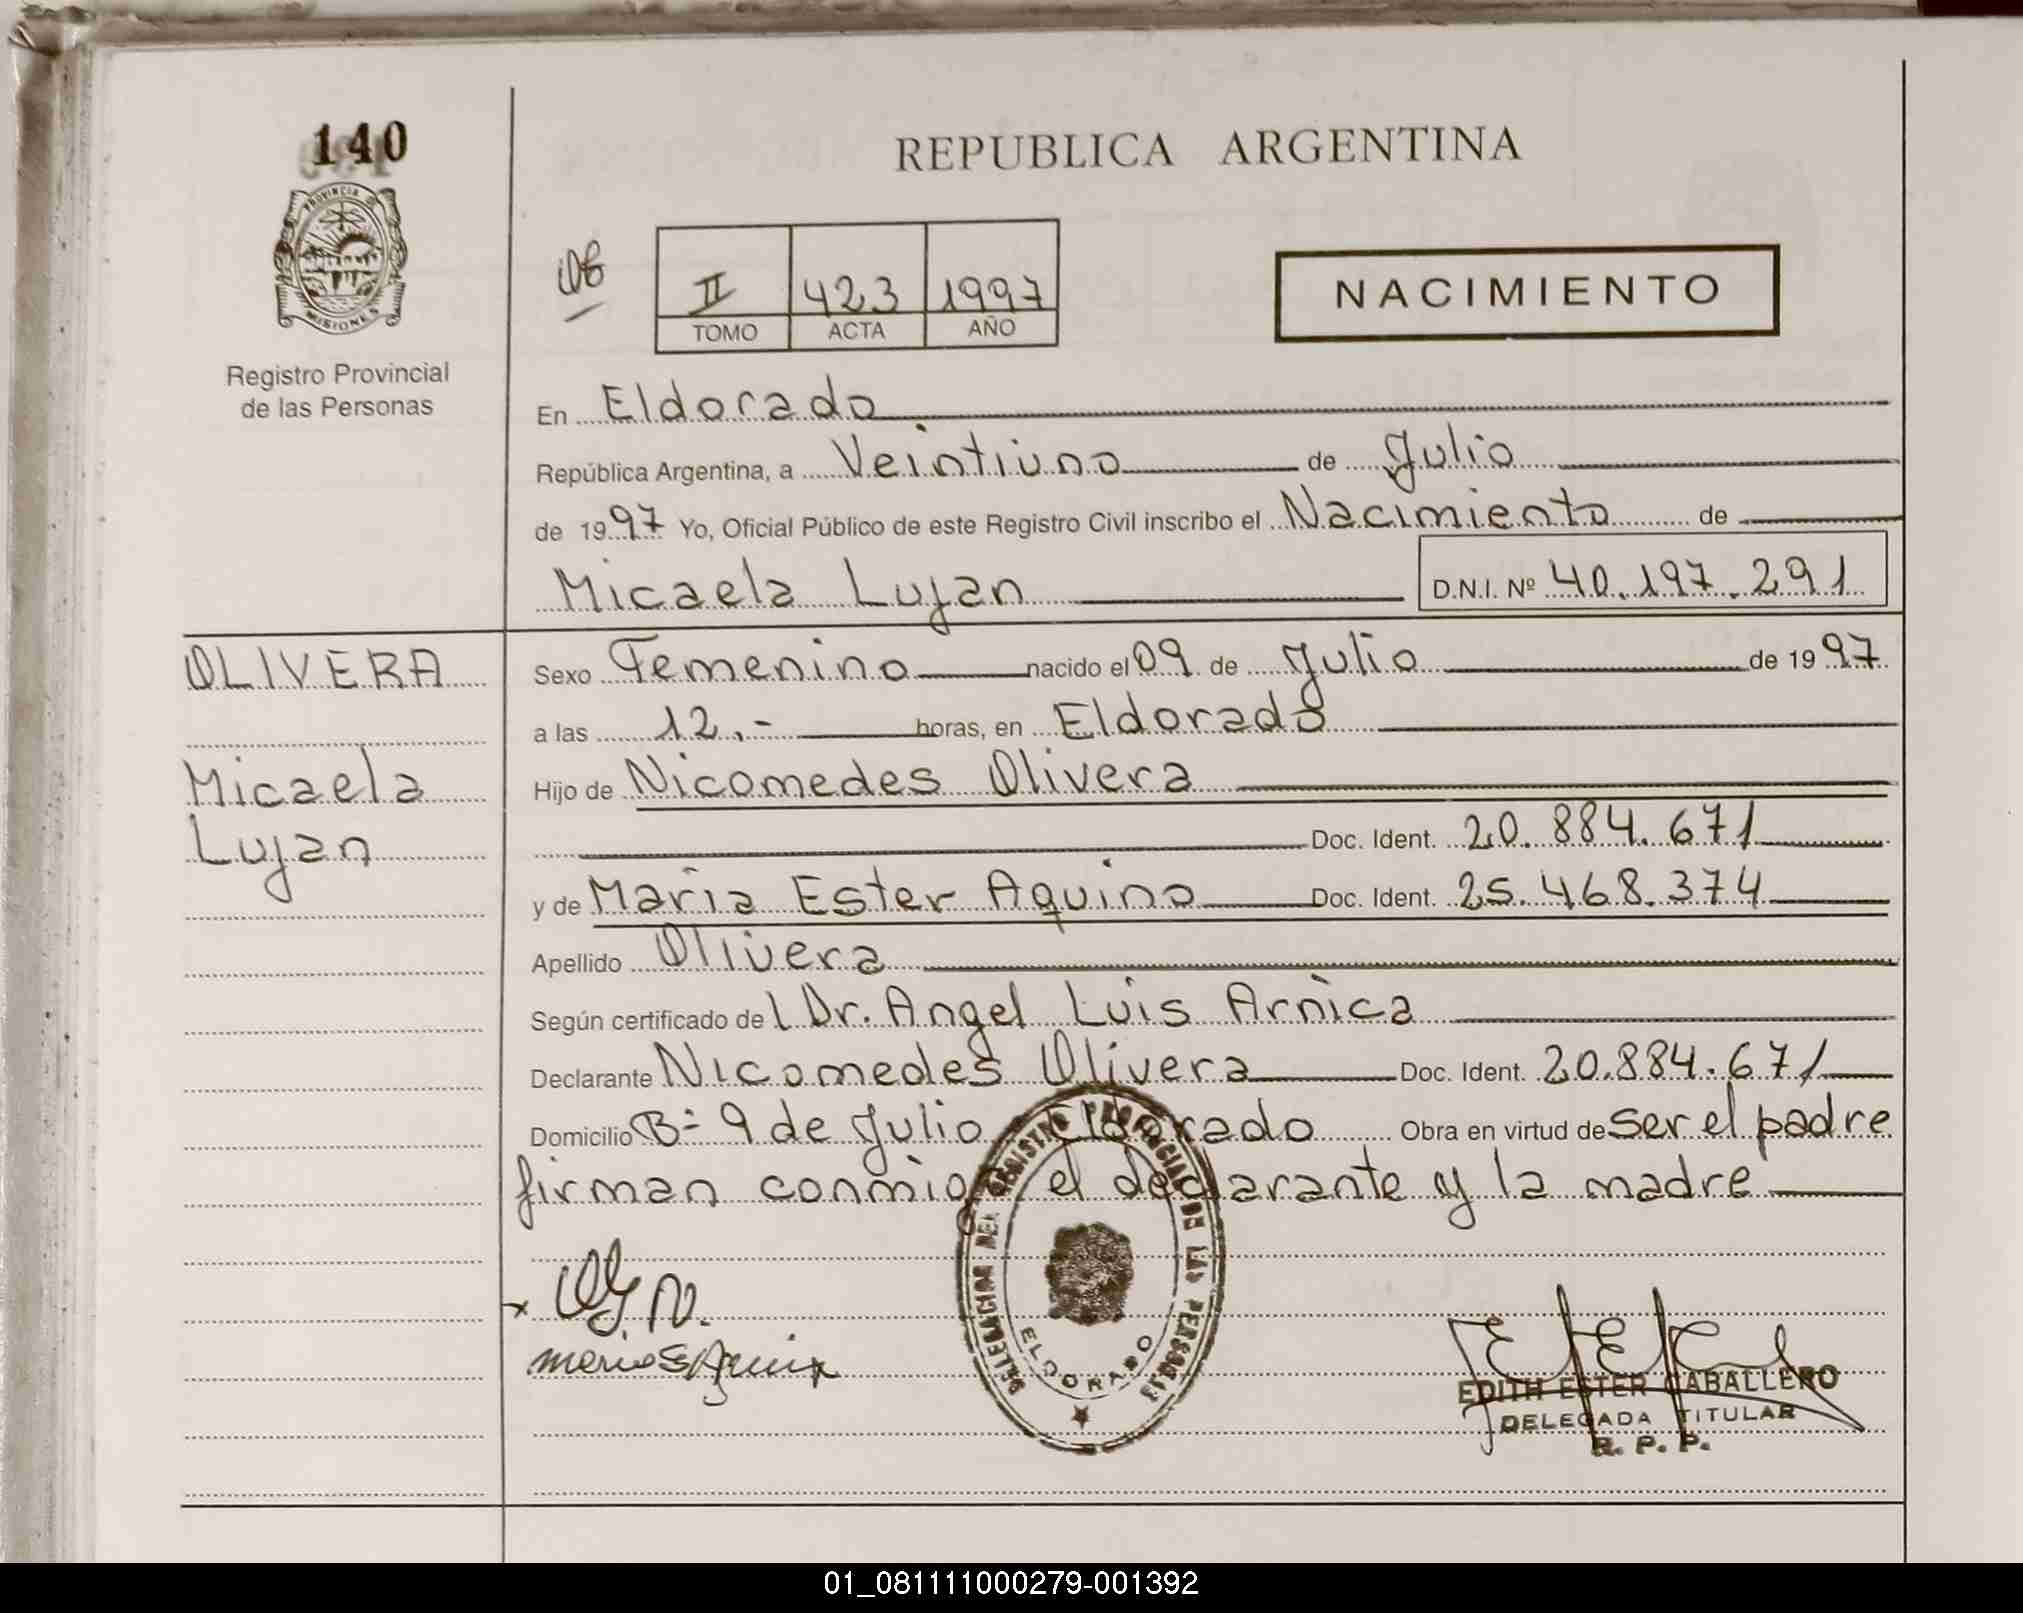 140
PROVINCIA
MISIONES
Registro Provincial
de las Personas
REPUBLICA ARGENTINA
II 423 1997
TOMO ACTA AÑO
NACIMIENTO
En Eldorado
República Argentina, a Veintiuno de Julio
de 1997 Yo, Oficial Público de este Registro Civil inscribo el Nacimiento de
Micaela Lujan D.N.I. Nº 40.197.291
OLIVERA
Micaela
Lujan
Sexo Femenino nacido el 09 de Julio de 1997
a las 12.- horas, en Eldorado
Hijo de Nicomedes Olivera
Doc. Ident. 20.884.671
y de Maria Ester Aquino Doc. Ident. 25.468.374
Apellido Olivera
Según certificado del Dr. Angel Luis Arnica
Declarante Nicomedes Olivera Doc. Ident. 20.884.671
Domicilio B= 9 de Julio Eldorado Obra en virtud de ser el padre
firman conmigo el declarante y la madre
DELEGACION DEL REGISTRO PROVINCIAL DE LAS PERSONAS
ELDORADO
EDITH ESTER CABALLERO
DELEGADA TITULAR
R. P. P.
01_081111000279-001392